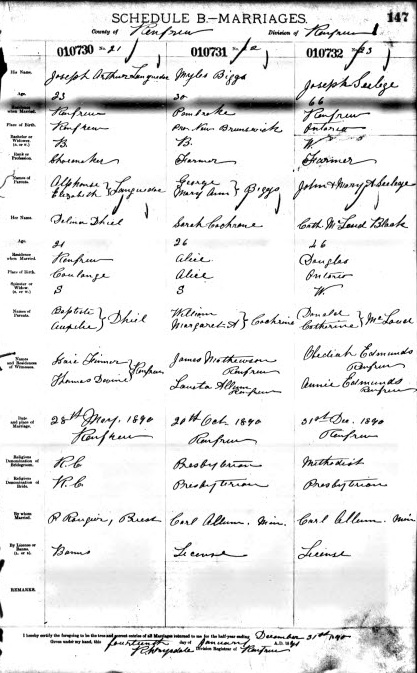 SCHEDULE B.—MARRIAGES.
147
County of Renfrew
Division of Renfrew
010730 No. 21
010731 No. 22
010732 No. 23
His Name.
Joseph Arthur
Myles Biggs
Joseph Seelege
Age.
23
30
66
Residence when Married.
Renfrew
Pembroke
Renfrew
Place of Birth.
Renfrew
Pro. New Brunswick
Ontario
Bachelor or Widower (B. or W.)
B.
B.
W.
Rank or Profession.
Shoemaker
Farmer
Farmer
Names of Parents.
Alphonse
Elizabeth
George
Mary Ann } Biggs
John & Mary A Seelege
Her Name.
Selma Dhiel
Sarah Cochrane
Cath McLeod Blaak
Age.
21
26
46
Residence when Married.
Renfrew
Alice
Douglas
Place of Birth.
Coulange
Alice
Ontario
Spinster or Widow (S. or W.)
S
S
W.
Names of Parents.
Baptiste
} Dhiel
William
Margaret A } Cochrane
Donald
Catherine } McLeod
Names and Residences of Witnesses.
Thomas Devine } Renfrew
James Mathewson
Renfrew
Laneta Allum
Renfrew
Obediah Edmunds
Renfrew
Annie Edmunds
Renfrew
Date and place of Marriage.
28th May. 1890
Renfrew
20th Oct. 1890
Renfrew
31st Dec. 1890
Renfrew
Religious Denomination of Bridegroom.
R.C
Presbyterian
Methodist
Religious Denomination of Bride.
R.C
Presbyterian
Presbyterian
By whom Married.
P Rougier, Priest
Carl Allum. Min.
Carl Allum. Min
By License or Banns (L. or B.)
Banns
License
License
REMARKS.
I hereby certify the foregoing to be the true and correct entries of all Marriages returned to me for the half-year ending December 31st 1890
Given under my hand, this fourteenth day of January A.D. 1891
Division Registrar of Renfrew